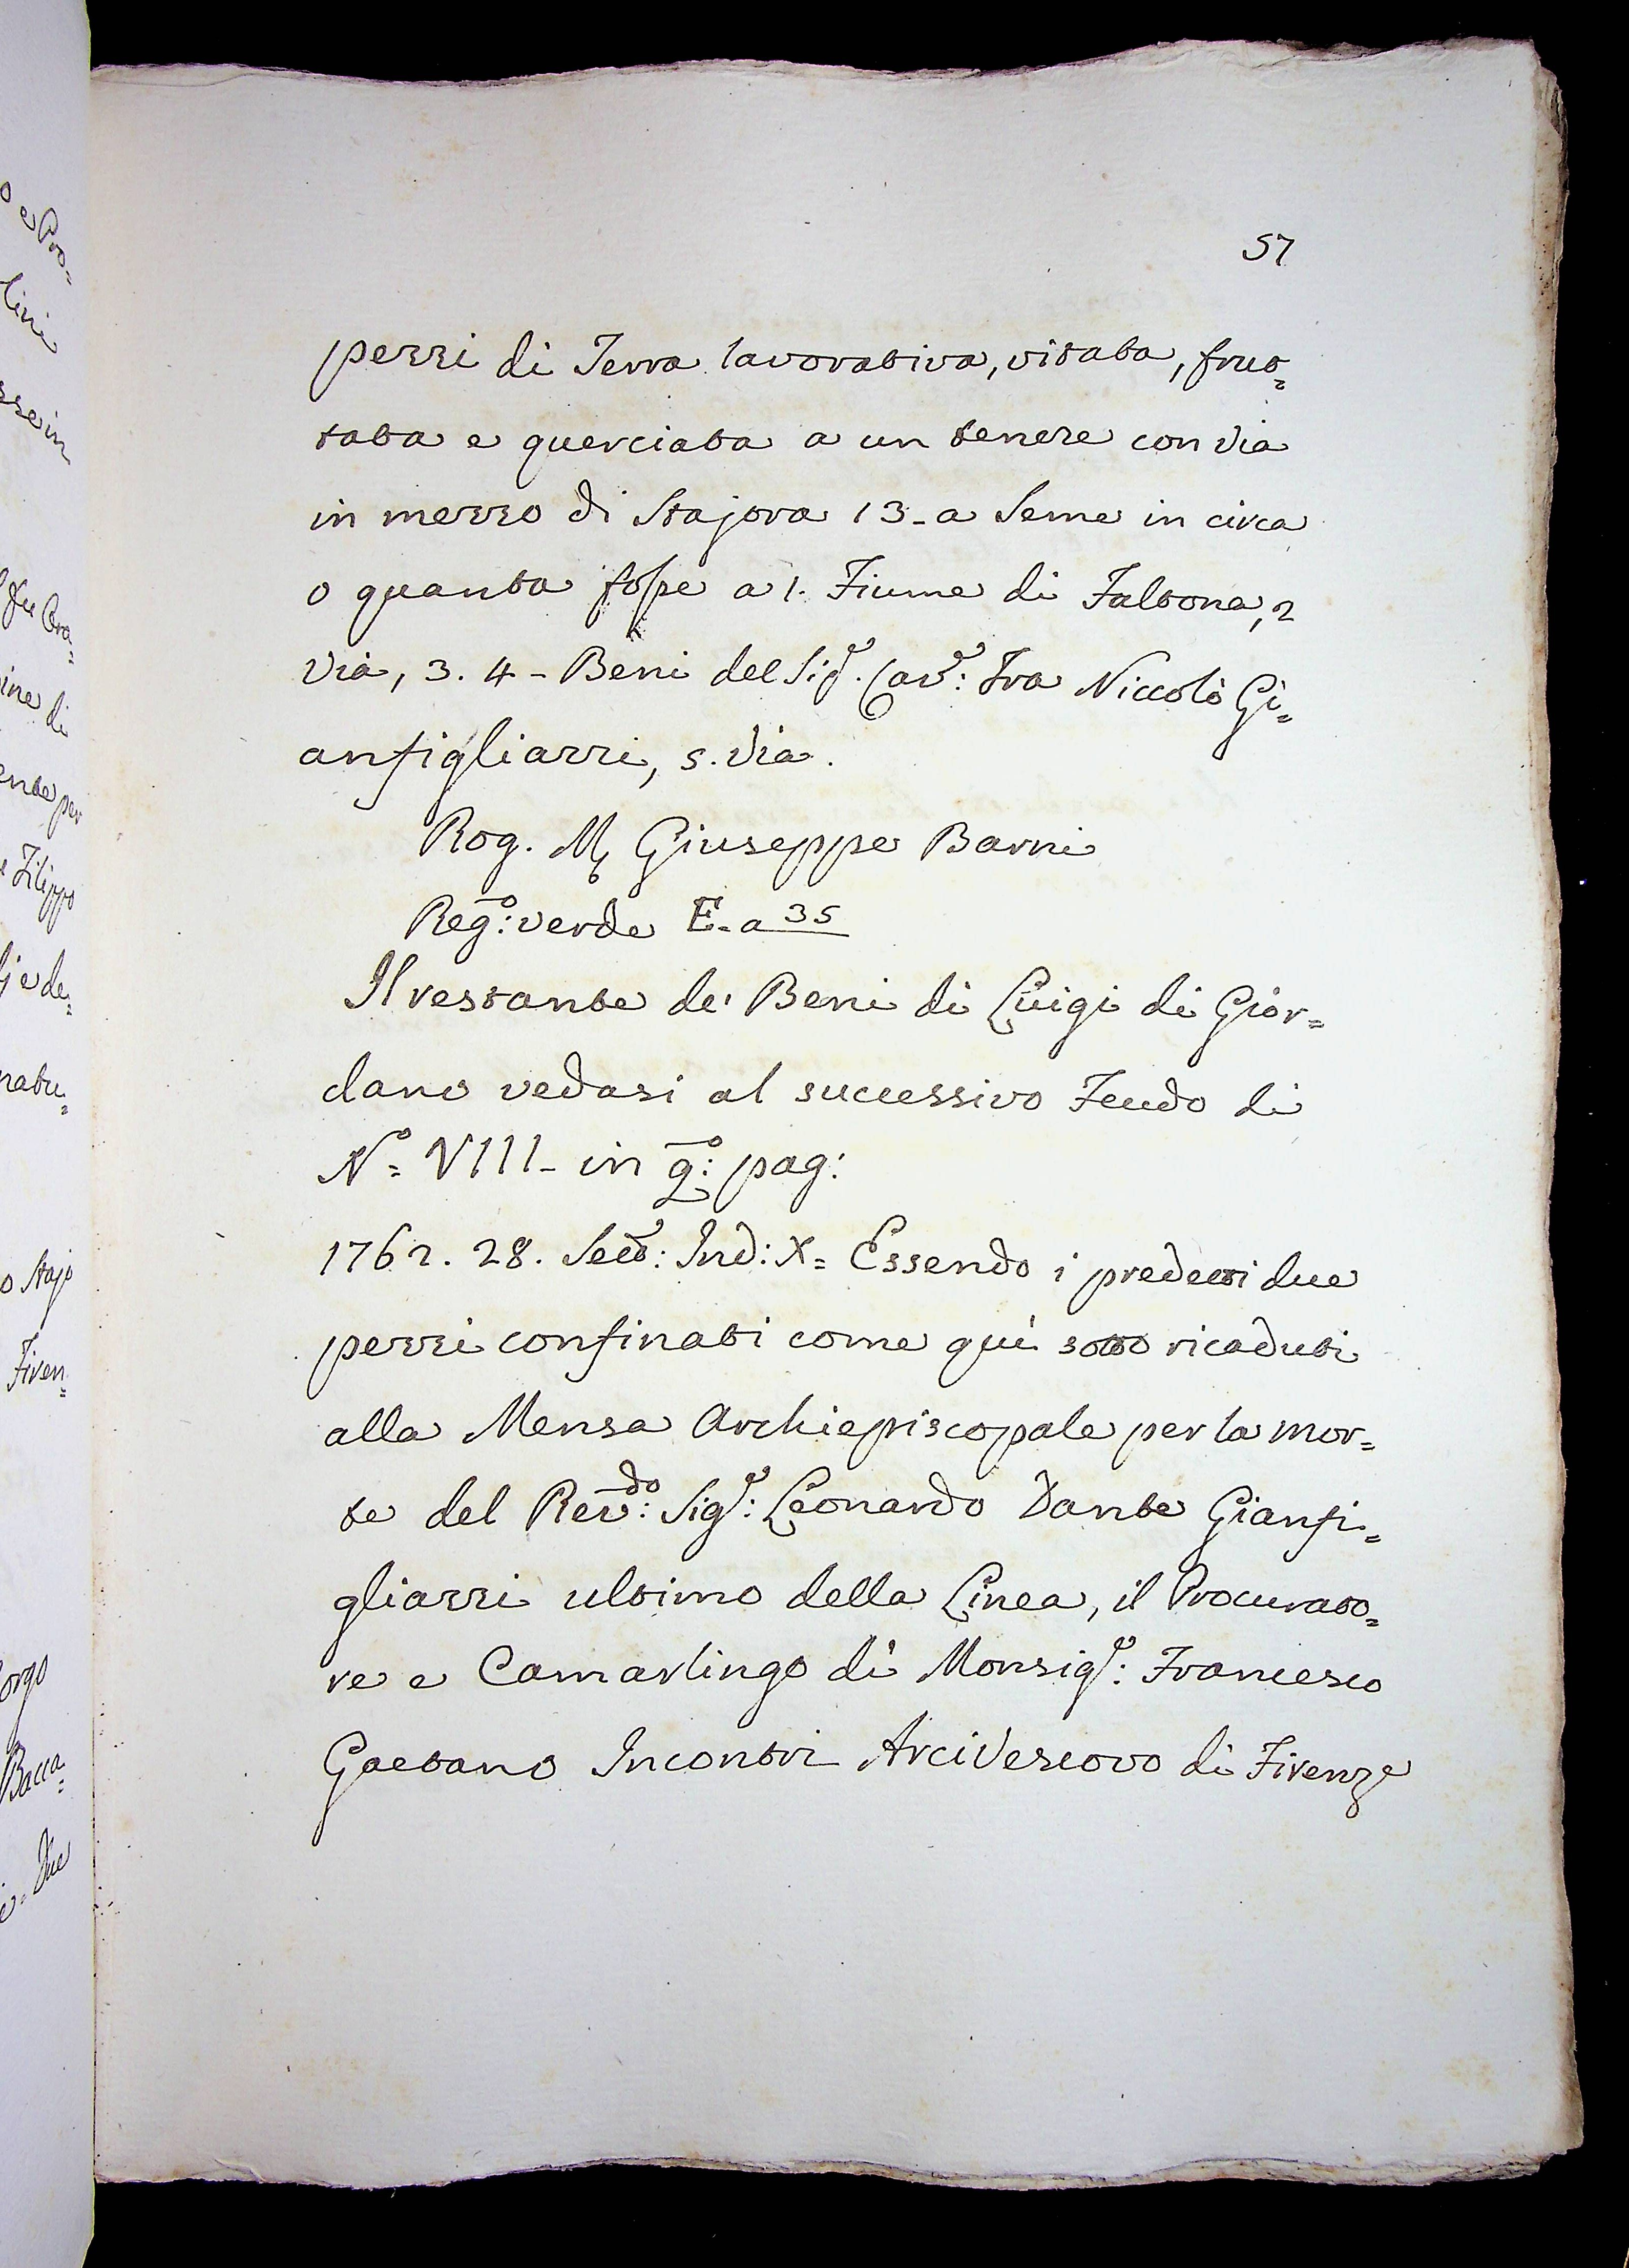 57
pezzi di Terra lavorativa, vitata, frut=
tata e querciata a un tenere con via
in mezzo di Stajora 13- a Seme in circa
o quanta fosse a 1. Fiume di Faltona, 2
Via, 3. 4- Beni del Sig.r Cav.r: Fra Niccolò Gi=
anfigliazzi, 5. Via.
Rog. M. Giuseppe Barni
Reg.o: verde E. a 35
Il restante de' Beni di Luigi di Gior=
dano vedasi al successivo Feudo di
N.o VIII- in q.o: pag:
1762. 28. Sett.e: Ind: X= Essendo i predetti due
pezzi confinati come quì sotto ricaduti
alla Mensa Archiepiscopale per la mor=
te del Rev.do: Sig.r: Leonardo Dante Gianfi=
gliazzi ultimo della Linea, il Procurato=
re e Camarlingo di Monsig.r: Francesco
Gaetano Incontri Arcivescovo di Firenze
o e Pro=
lini
ine di
ente per
e Filippo
j e de=
natu=
o Stajo
Firen=
orgo
Bacca=
Due